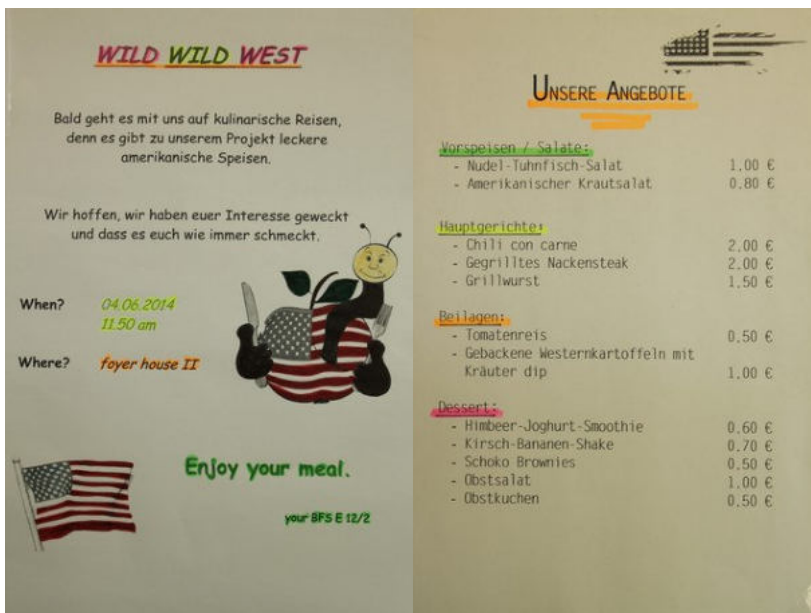 WILD WILD WEST
Bald geht es mit uns auf kulinarische Reisen,
denn es gibt zu unserem Projekt leckere
amerikanische Speisen.
Wir hoffen, wir haben euer Interesse geweckt
und dass es euch wie immer schmeckt.
When? 04.06.2014
11.50 am
Where? foyer house II
Enjoy your meal.
your BFS E 12/2
UNSERE ANGEBOTE
Vorspeisen / Salate:
- Nudel-Tuhnfisch-Salat 1,00 €
- Amerikanischer Krautsalat 0,80 €
Hauptgerichte:
- Chili con carne 2,00 €
- Gegrilltes Nackensteak 2,00 €
- Grillwurst 1,50 €
Beilagen:
- Tomatenreis 0,50 €
- Gebackene Westernkartoffeln mit
Kräuter dip 1,00 €
Dessert:
- Himbeer-Joghurt-Smoothie 0,60 €
- Kirsch-Bananen-Shake 0,70 €
- Schoko Brownies 0,50 €
- Obstsalat 1,00 €
- Obstkuchen 0,50 €